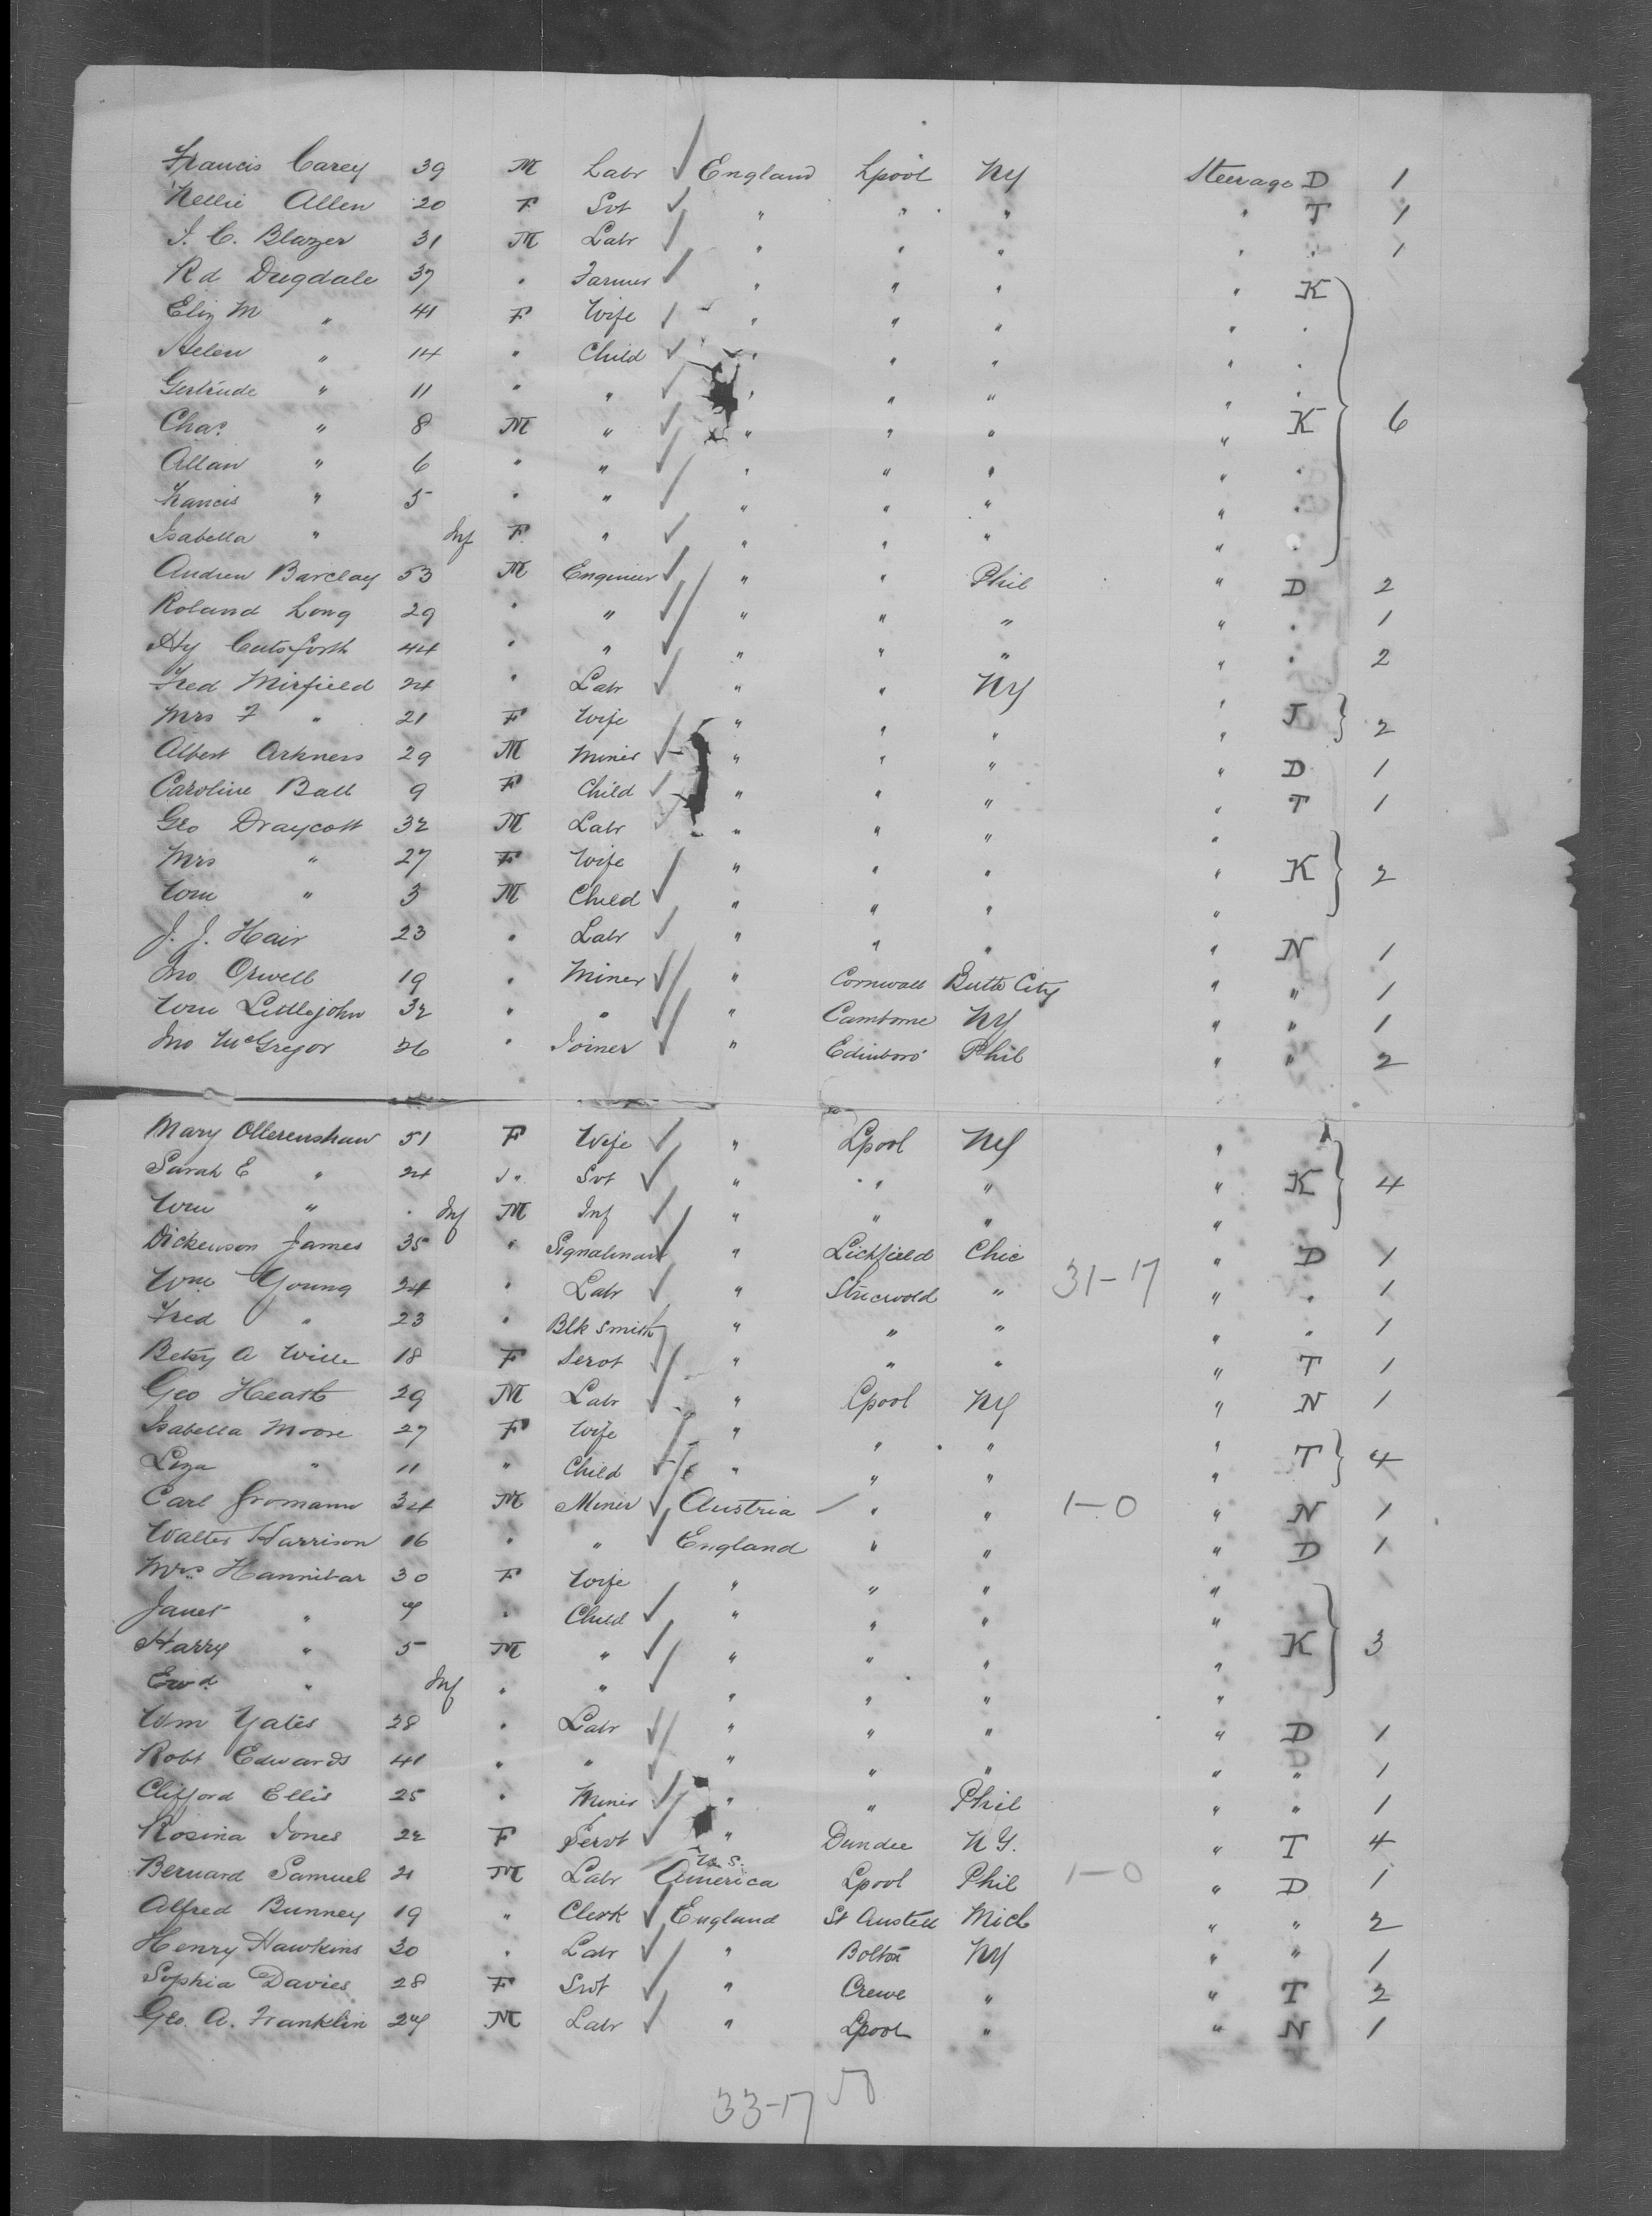 Francis Carey 39 M Labr England Lpool NY Steerage D 1
Nellie Allen 20 F Svt " " " " T 1
J. C. Blazer 31 M Labr " " " " " 1
Rd Dugdale 37 " Farmer " " " " K
Eliz M " 41 F Wife " " " " "
Helen " 14 " Child " " " " "
Gertrude " 11 " " " " " " "
Chas " 8 M " " " " " K 6
Allan " 6 " " " " " " "
Francis " 5 " " " " " " "
Isabella " Inf F " " " " " "
Andrew Barclay 53 M Engineer " " Phil " D 2
Roland Long 29 " " " " " " " 1
Hy Cutsforth 44 " " " " " " " 2
Fred Mirfield 24 " Labr " " NY "
Mrs F " 21 F Wife " " " " T 2
Albert Arkness 29 M Miner " " " " D 1
Caroline Ball 9 F Child " " " " T 1
Geo Draycott 32 M Labr " " " "
Mrs " 27 F Wife " " " " K 2
Wm " 3 M Child " " " "
J. J. Hair 23 " Labr " " " " N 1
Jno Orwell 19 " Miner " Cornwall Butte City " " 1
Wm Littlejohn 32 " " " Camborne NY " " 1
Jno McGregor 26 " Joiner " Edinboro' Phil " " 2
Mary Ollerenshaw 51 F Wife " Lpool NY "
Sarah E " 24 " Svt " " " " K 4
Wm " Inf M Inf " " " "
Dickenson James 35 " Signalman " Lichfield Chic " D 1
Wm Young 24 " Labr " " 31-17 " " 1
Fred " 23 " Blk smith " " " " " 1
Betsy A Wille 18 F Servt " " " " T 1
Geo Heath 29 M Labr " Lpool NY " N 1
Isabella Moore 27 F Wife " " " "
Liza " 11 " Child " " " " T 4
Carl Gromann 34 M Miner Austria " " 1-0 " N 1
Walter Harrison 16 " " England " " " D 1
Mrs Hannibar 30 F Wife " " " "
Janet " 7 " Child " " " "
Harry " 5 M " " " " " K 3
Ewd " Inf " " " " " "
Wm Yates 28 " Labr " " " " D 1
Robt Edwards 41 " " " " " " " 1
Clifford Ellis 25 " Miner " " Phil " " 1
Rosina Jones 22 F Servt " Dundee N Y. " T 4
Bernard Samuel 21 M Labr U. S. America Lpool Phil 1-0 " D 1
Alfred Bunney 19 " Clerk England St Austell Mich " " 2
Henry Hawkins 30 " Labr " Bolton NY " " 1
Sophia Davies 28 F Svt " Crewe " " T 2
Geo. A. Franklin 27 M Labr " Lpool " " N 1
33-17 50